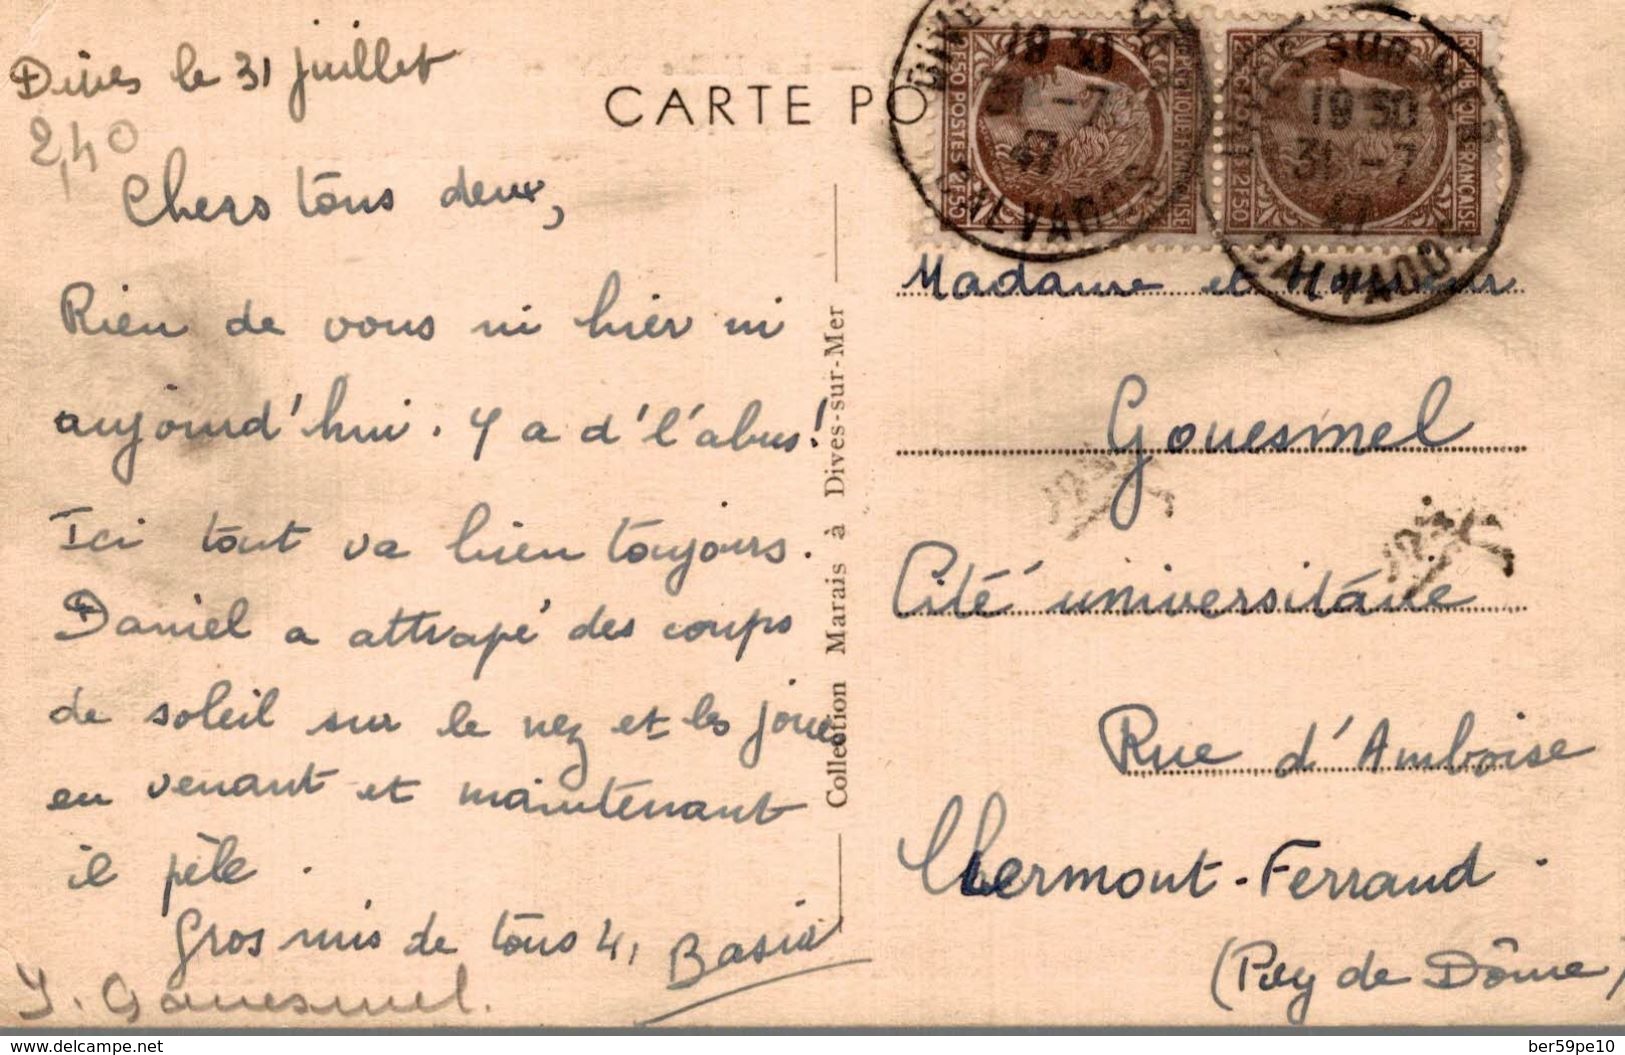 Dives le 31 juillet
2,40
Chers tous deux,
Rien de vous ni hier ni
aujourd'hui. Y a d'l'abus!
Ici tout va bien toujours.
Daniel a attrapé des coups
de soleil sur le nez et les joues
en venant et maintenant
il pèle.
Gros mis de tous 4,
Basia
Y. Gouesmel.
CARTE PO
Collection Marais à Dives-sur-Mer
2F50 POSTES 2F50
2F50
19 30
31 -7
47
CALVADOS
SUR MER
19 30
31 -7
47
CALVADOS
Madame et Monsieur
Gouesmel
Cité universitaire
Rue d'Amboise
Clermont-Ferrand.
(Puy de Dôme)
www.delcampe.net
ber59pe10